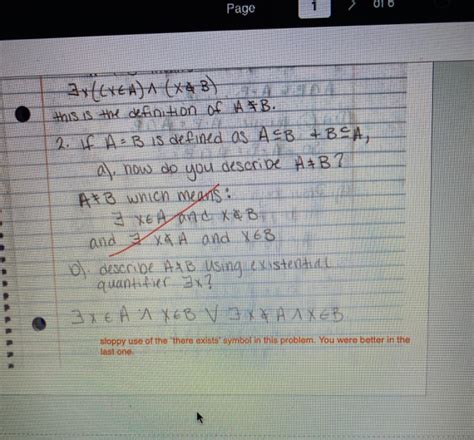 Page 1 > of 6
∃x((x∈A)∧(x∉B)
this is the definition of A⊈B.
2. if A=B is defined as A⊆B + B⊆A,
a). how do you describe A≠B?
A≠B which means:
∃ x∈A and x∉B
and ∃ x∉A and x∈B
b). describe A≠B using existential
quantifier ∃x?
∃x∈A∧x∈B ∨ ∃x∉A∧x∈B
sloppy use of the "there exists" symbol in this problem. You were better in the
last one.